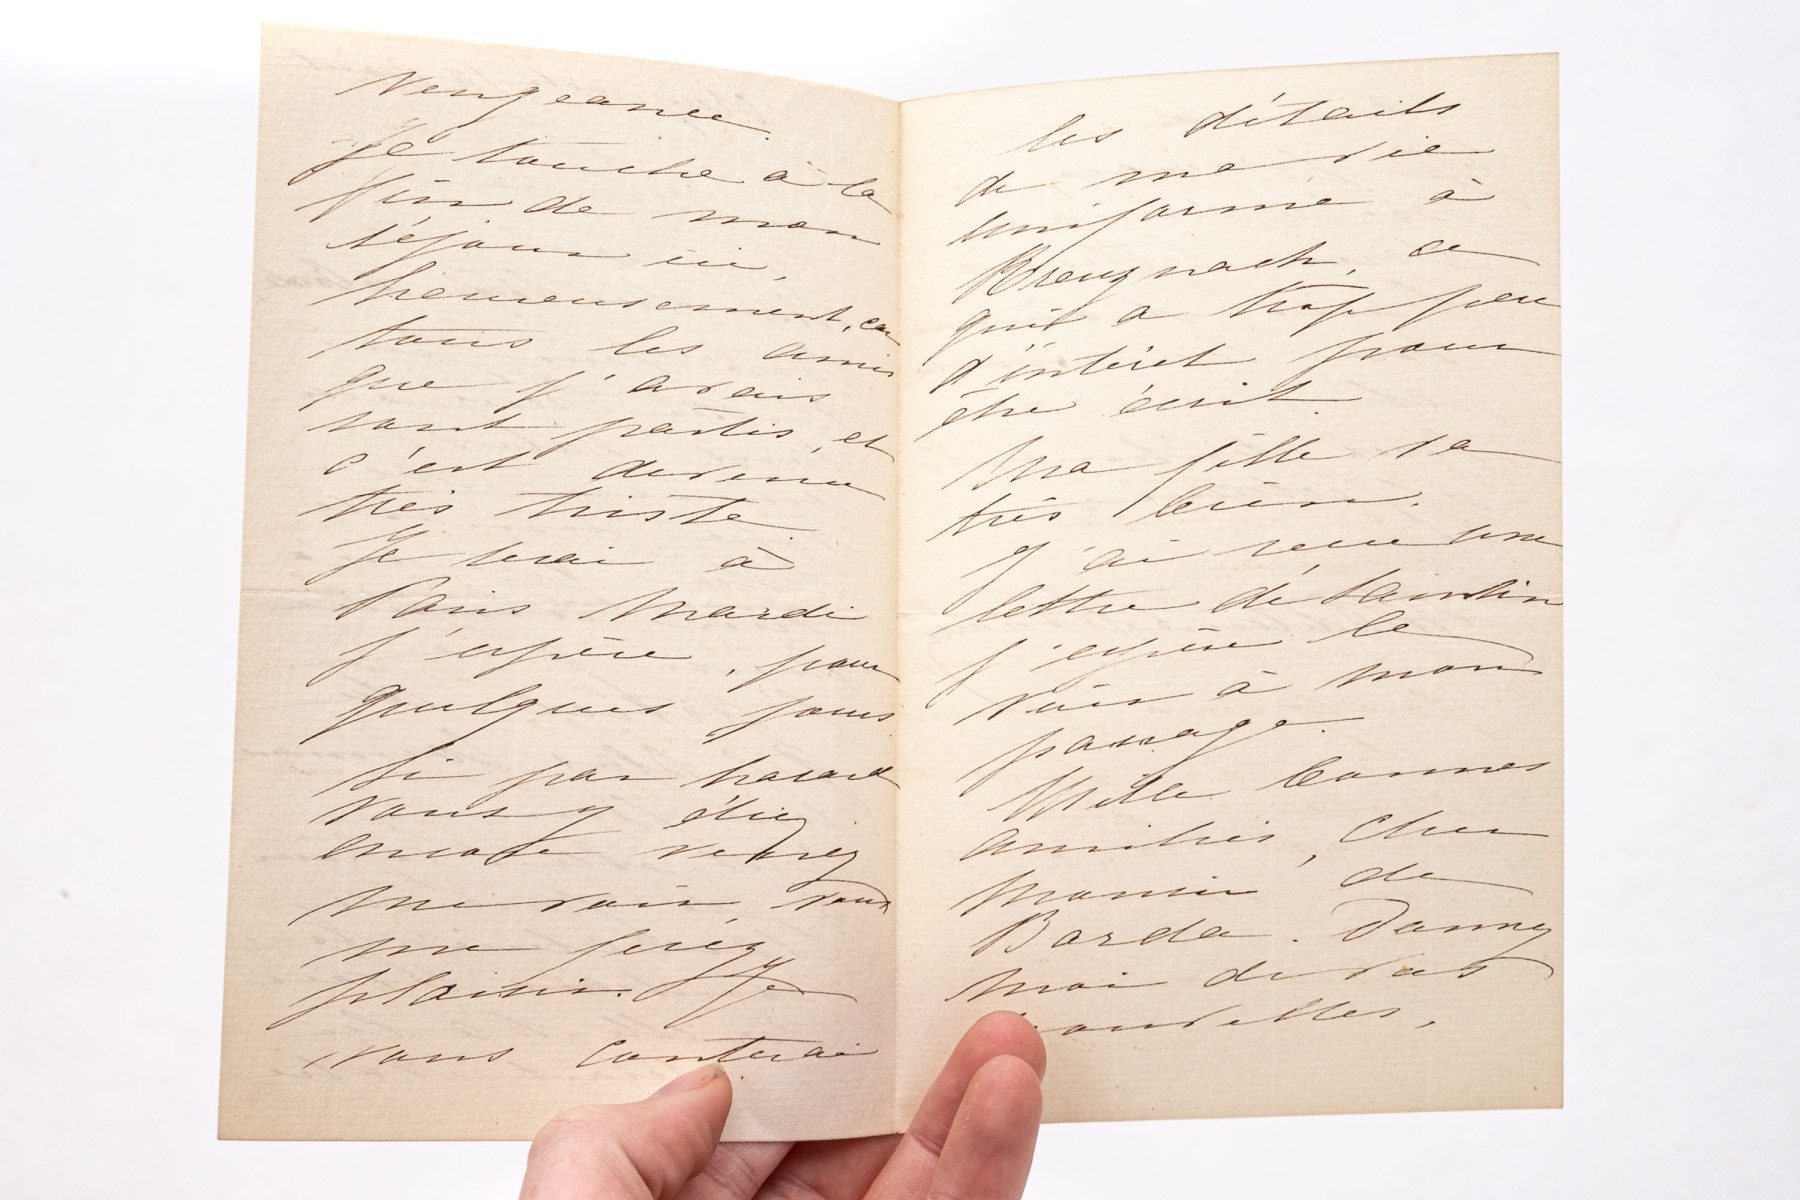 vengeance.
Je touche à la
fin de mon
séjour ici,
heureusement, car
tous les amis
que j'avais
sont partis, et
c'est devenu
très triste.
Je serai à
Paris Mardi
j'espère, pour
quelques jours
Si par hasard
vous y étiez
encore venez
me voir, vous
me ferez
plaisir. Je
vous conterai
les détails
de ma vie
uniforme à
Kreuznach, ce
qui a trop peu
d'intérêt pour
être écrit.
Ma fille va
très bien.
J'ai reçu une
lettre de
j'espère le
voir à mon
passage.
Mille bonnes
amitiés, cher
Monsieur de
Borda. Donnez
moi de vos
nouvelles,